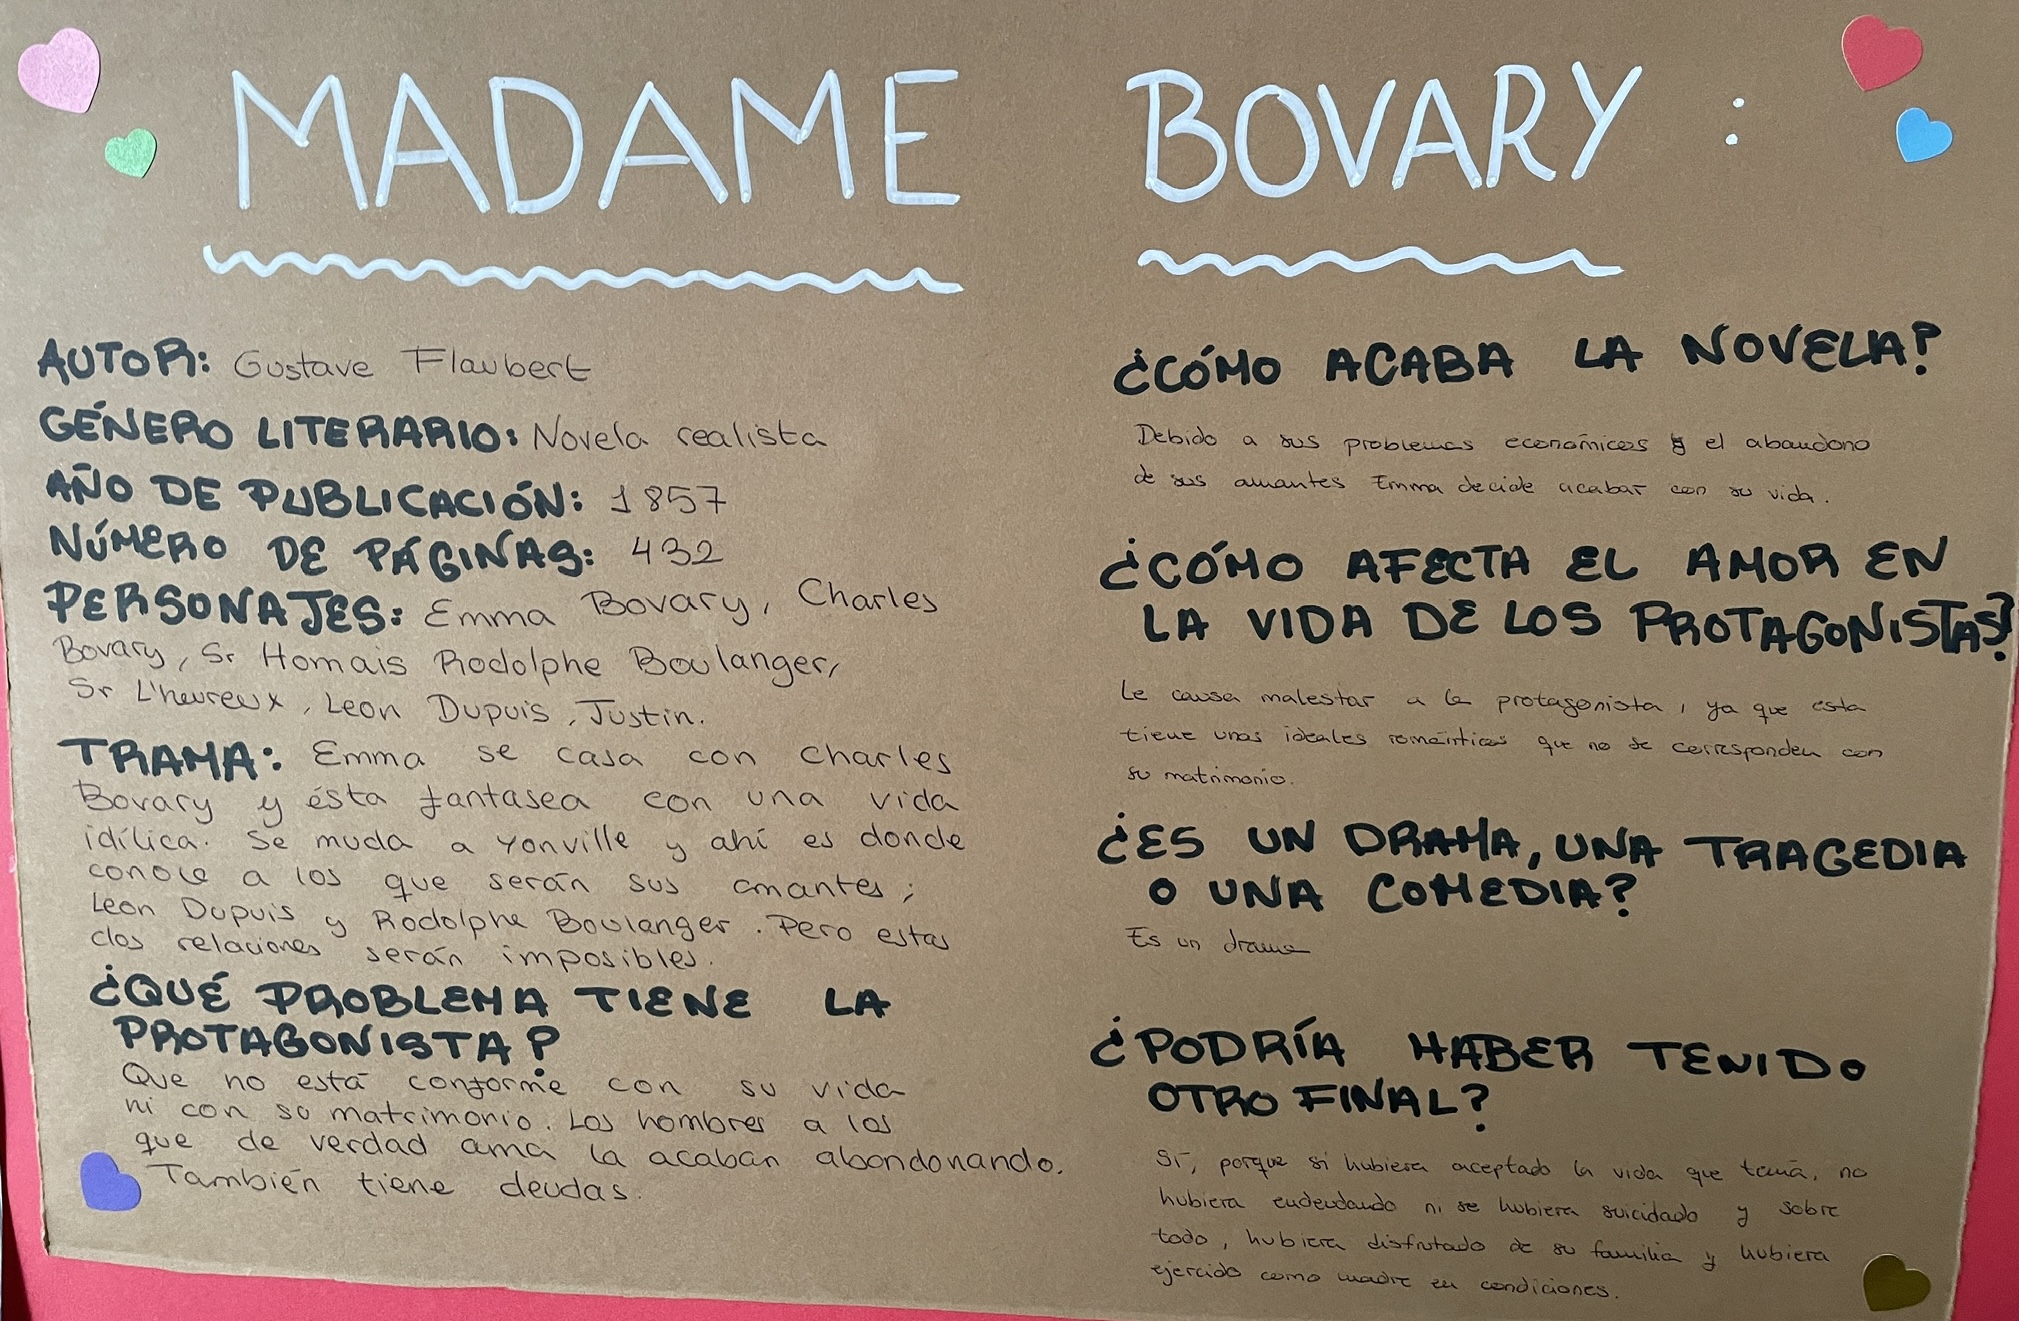 MADAME BOVARY :
AUTOR: Gustave Flaubert
GÉNERO LITERARIO: Novela realista
AÑO DE PUBLICACIÓN: 1857
NÚMERO DE PÁGINAS: 432
PERSONAJES: Emma Bovary, Charles
Bovary, Sr Homais Rodolphe Boulanger,
Sr L'heureux, Leon Dupuis, Justin.
TRAMA: Emma se casa con Charles
Bovary y ésta fantasea con una vida
idílica. Se muda a Yonville y ahí es donde
conoce a los que serán sus amantes;
Leon Dupuis y Rodolphe Boulanger. Pero estas
dos relaciones serán imposibles.
¿QUÉ PROBLEMA TIENE LA
PROTAGONISTA?
Que no está conforme con su vida
ni con su matrimonio. Los hombres a los
que de verdad ama la acaban abandonando.
También tiene deudas.
¿CÓMO ACABA LA NOVELA?
Debido a sus problemas económicos y el abandono
de sus amantes Emma decide acabar con su vida.
¿CÓMO AFECTA EL AMOR EN
LA VIDA DE LOS PROTAGONISTAS?
Le causa malestar a la protagonista, ya que esta
tiene unos ideales románticos que no se corresponden con
su matrimonio.
¿ES UN DRAMA, UNA TRAGEDIA
O UNA COMEDIA?
Es un drama
¿PODRÍA HABER TENIDO
OTRO FINAL?
Sí, porque si hubiera aceptado la vida que tenía, no
hubiera endeudando ni se hubiera suicidado y sobre
todo, hubiera disfrutado de su familia y hubiera
ejercido como madre en condiciones.